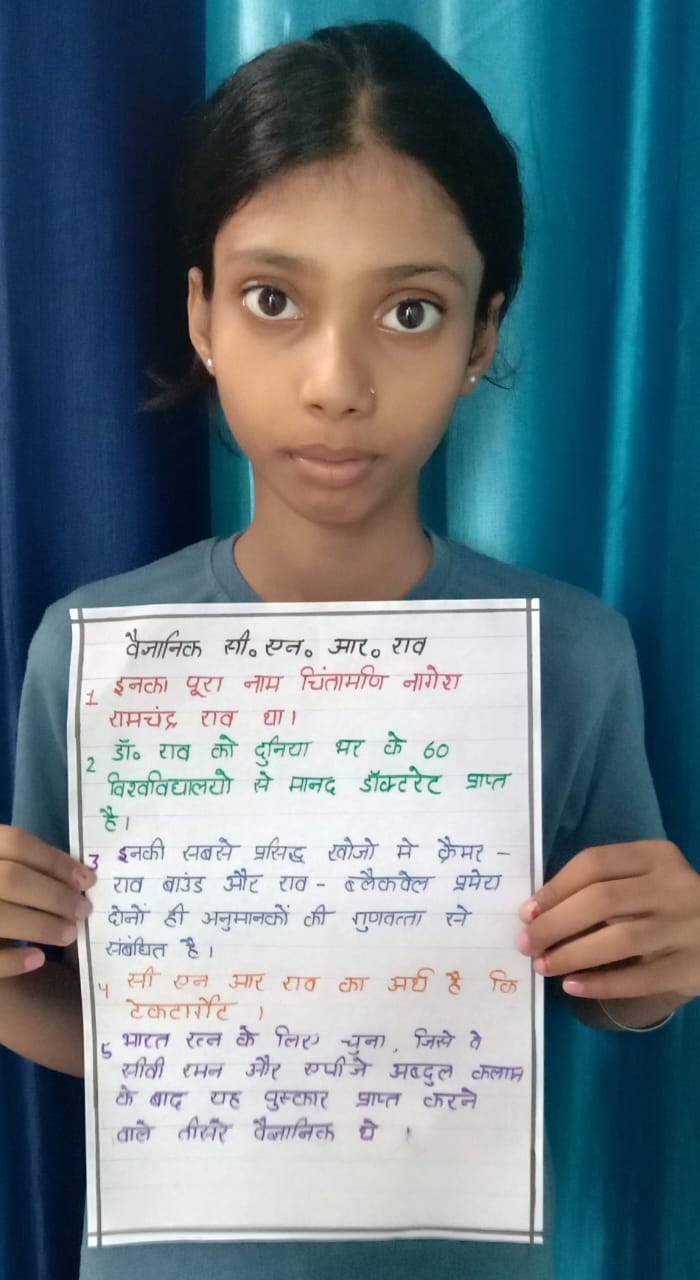 वैज्ञानिक सी० एन० आर० राव
1 इनका पूरा नाम चिंतामणि नागेश
रामचंद्र राव था।
2 डॉ० राव को दुनिया भर के 60
विश्वविद्यालयो से मानद डॉक्टरेट प्राप्त
है।
3 इनकी सबसे प्रसिद्ध खोजो मे क्रैमर –
राव बाउंड और राव – ब्लैकवेल प्रमेय
दोनों ही अनुमानकों की गुणवत्ता से
संबंधित है।
4 सी एन आर राव का अर्थ है कि
टेकटार्गेट ।
5 भारत रत्न के लिए चुना, जिसे वे
सीवी रमन और एपीजे अब्दुल कलाम
के बाद यह पुस्कार प्राप्त करने
वाले तीसरे वैज्ञानिक थे ।